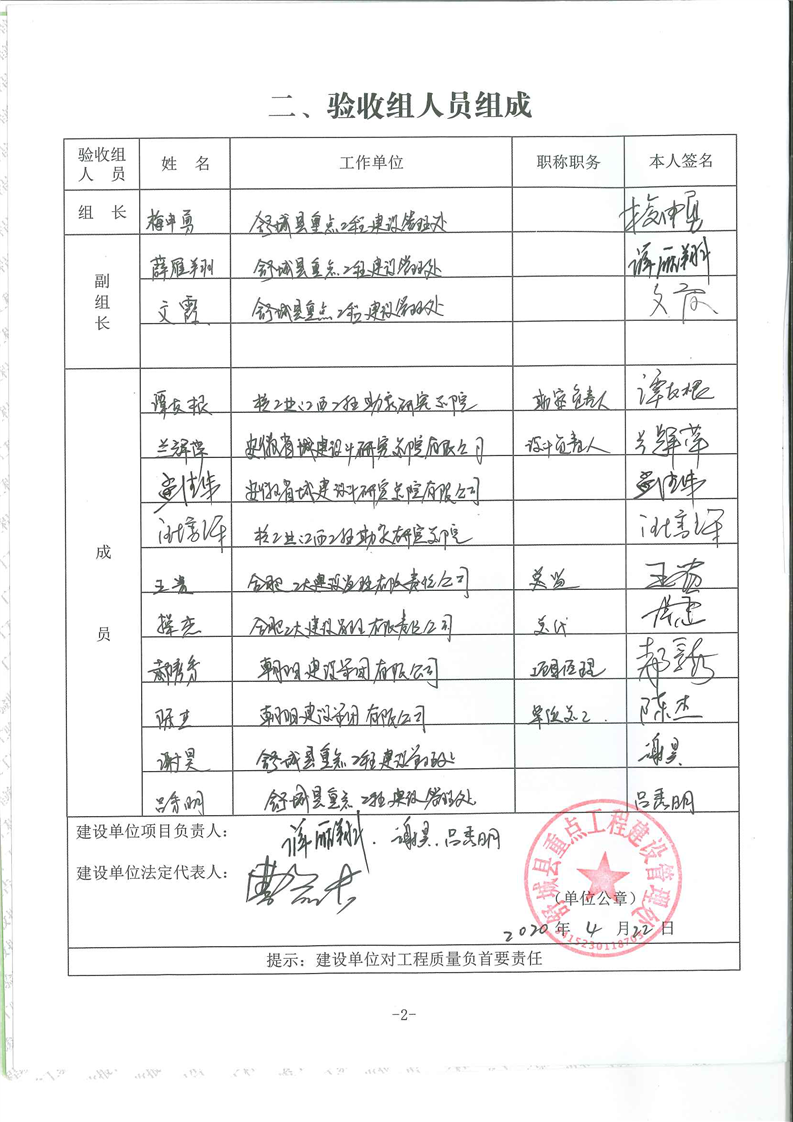 二、验收组人员组成
验收组人员 姓名 工作单位 职称职务 本人签名
组长 梅中勇 舒城县重点工程建设管理处 梅中勇
副组长
薛雁翔 舒城县重点工程建设管理处
文霞 舒城县重点工程建设管理处 文霞
成员
谭友根 核工业江西工程勘察研究总院 勘察负责人 谭友根
兰辉萍 安徽省城建设计研究总院有限公司 设计负责人 兰辉萍
安徽省城建设计研究总院有限公司
核工业江西工程勘察研究总院
王贵 合肥工大建设监理有限责任公司 总监 王贵
合肥工大建设监理有限责任公司 总代
朝阳建设集团有限公司 项目经理
陈杰 朝阳建设集团有限公司 单位总工 陈杰
谢昊 舒城县重点工程建设管理处 谢昊
吕秀明 舒城县重点工程建设管理处 吕秀明
建设单位项目负责人： 谢昊 . 吕秀明
建设单位法定代表人：
舒城县重点工程建设管理处
（单位公章）
2020年 4月22日
提示：建设单位对工程质量负首要责任
-2-